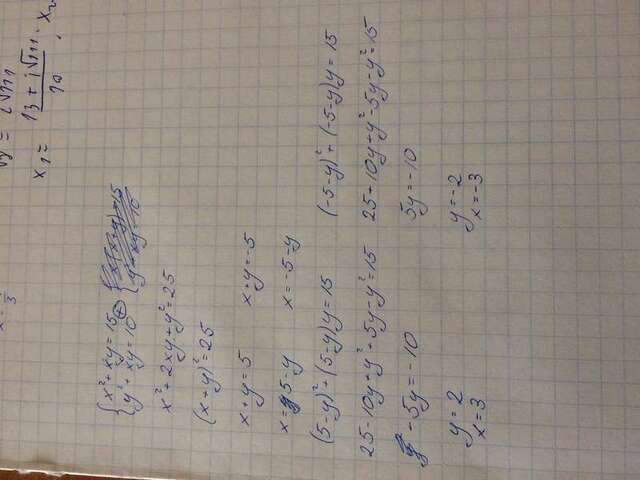 x = 1/3
√y = i√111
x₁ = (13 + i√111)/10 , x₂
{ x² + xy = 15 ⊕
{ y² + xy = 10
x² + 2xy + y² = 25
(x+y)² = 25
x + y = 5 x + y = -5
x = 5 - y x = -5 - y
(5-y)² + (5-y)y = 15 (-5-y)² + (-5-y)y = 15
25 - 10y + y² + 5y - y² = 15 25 + 10y + y² - 5y - y² = 15
-5y = -10 5y = -10
y = 2 y = -2
x = 3 x = -3